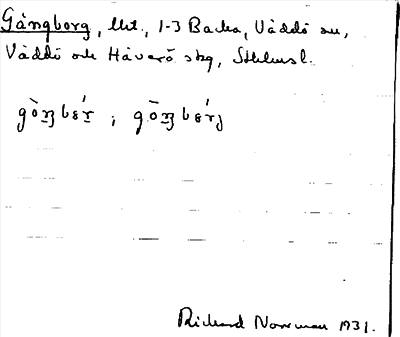 Gångborg, lht., 1-3 Backa, Väddö sn,
Väddö och Häverö skg, Sthlmsl.
gò̄ŋbǝŕ ; gò̄ŋbǝŕj
Richard Norrman 1931.